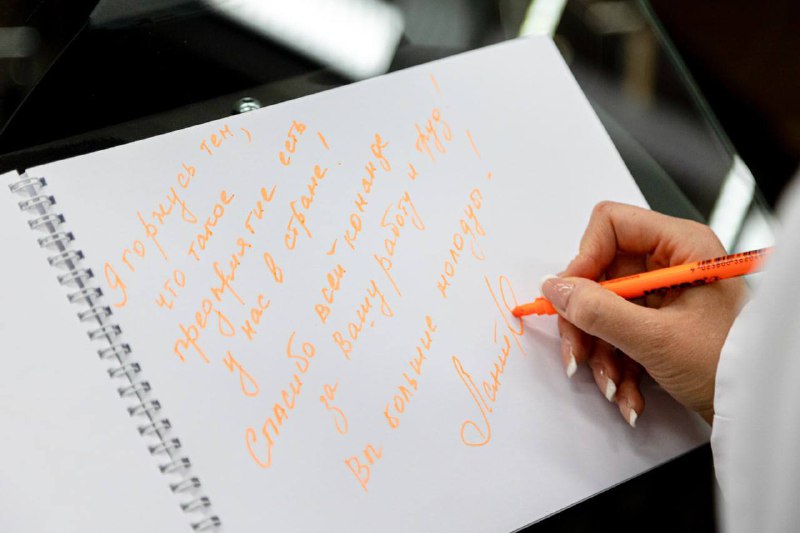 Я горжусь тем,
что такое
предприятие есть
у нас в стране!
Спасибо всей команде
за вашу работу и труд!
Вы большие молодцы!